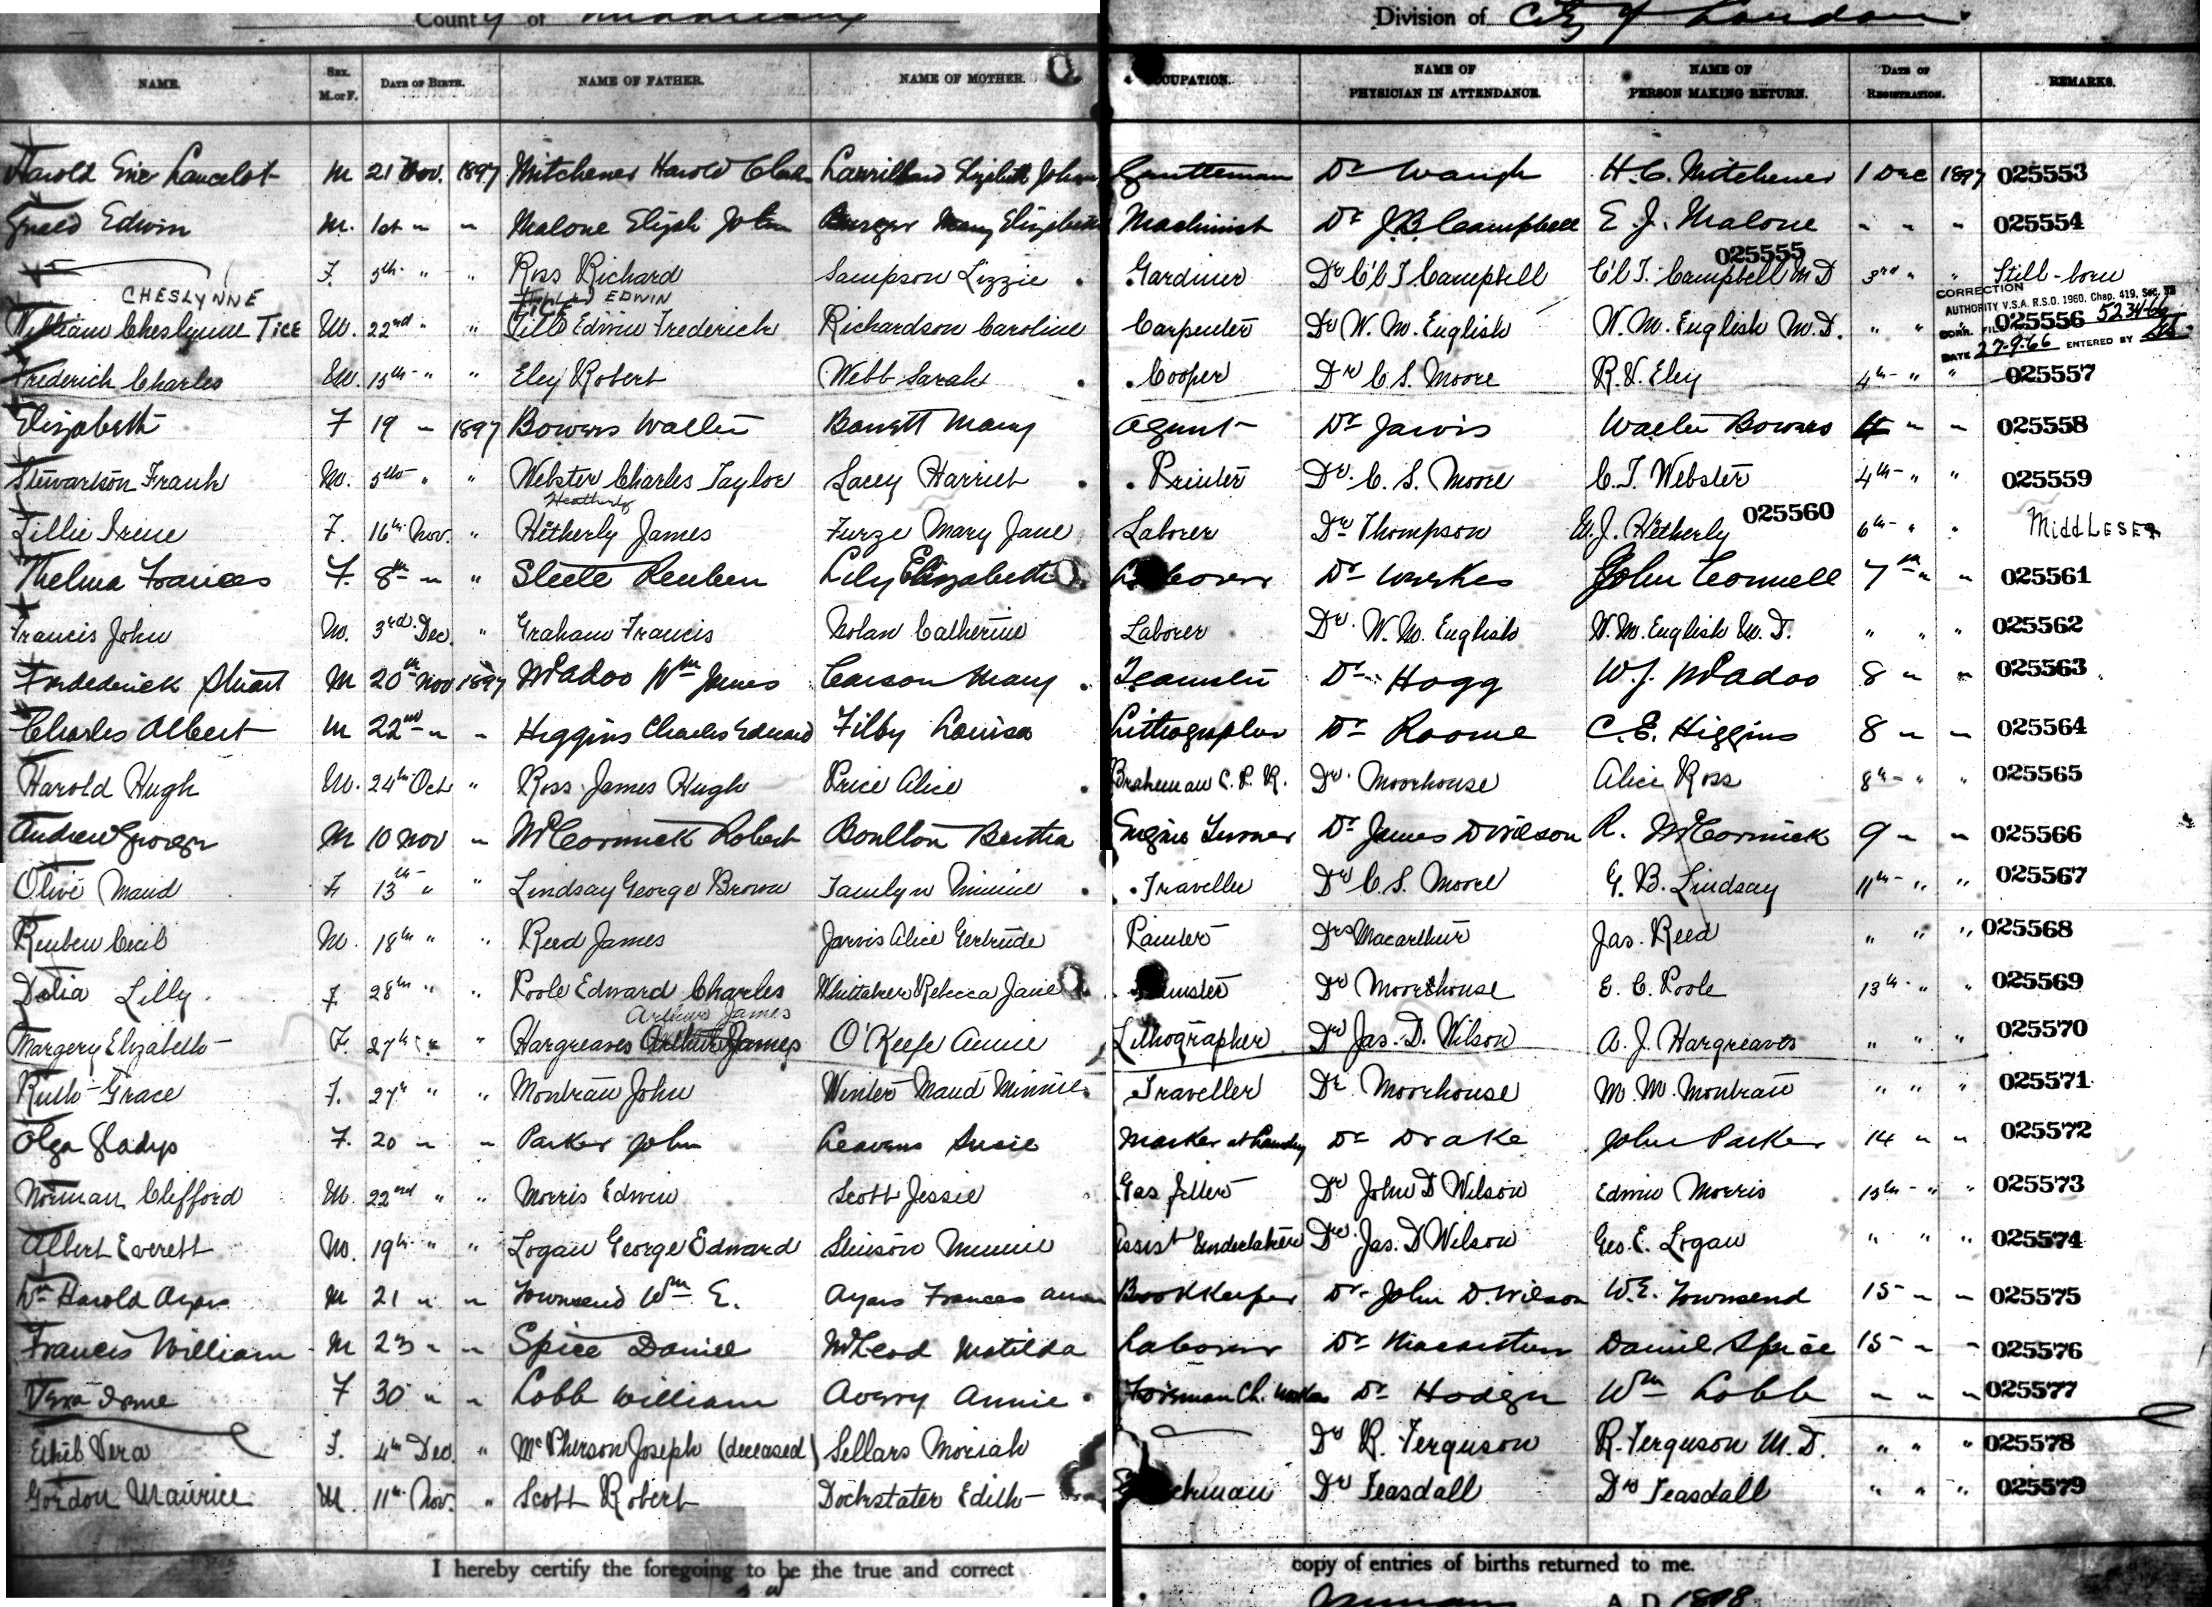 County of Middlesex Division of City of London
NAME. SEX. M. or F. DATE OF BIRTH. NAME OF FATHER. NAME OF MOTHER. OCCUPATION. NAME OF PHYSICIAN IN ATTENDANCE. NAME OF PERSON MAKING RETURN. DATE OF REGISTRATION. REMARKS.
Harold Eric Lancelot M 21 Nov. 1897 Mitchener Harold Elizabeth Gentleman Dr Waugh H. C. Mitchener 1 Dec 1897 025553
Edwin M. 1st " " Malone Elijah John Mary Elizabeth Machinist Dr J. B. Campbell E. J. Malone " " " 025554
F. 5th " " Ross Richard Sampson Lizzie Gardiner Dr C'l T Campbell C'l T. Campbell M D 025555 3rd " " Still-born
CHESLYNNE TICE EDWIN CORRECTION
AUTHORITY V.S.A. R.S.O. 1960, Chap. 419, Sec.
William Cheslynne TICE M. 22nd " " Edwin Frederick Richardson Caroline Carpenter Dr W. M. English W. M. English M. D. " " " CORR. FILE 025556
DATE 27-9-66 ENTERED BY
Frederick Charles M. 15th " " Eley Robert Webb Sarah Cooper Dr C S. Moore R. V. Eley 4th " " 025557
Elizabeth F 19 " 1897 Bowers Walter Barrett Mary Agent Dr Jarvis Walter Bowers 4 " " 025558
Stewartson Frank M. 5th " " Webster Charles Taylor Lacey Harriet Printer Dr. C. S. Moore C. T. Webster 4th " " 025559
Heatherly
Lillie Irene F. 16th Nov. " Hetherly James Furze Mary Jane Laborer Dr Thompson M. J. Hetherly 025560 6th " " MIDDLESEX
Thelma Frances F. 8th " " Steele Reuben Lily Elizabeth Laborer Dr Weekes John Connell 7th " " 025561
Francis John M. 3rd Dec. " Graham Francis Nolan Catherine Laborer Dr. W. M. English W. M. English M. D. " " " 025562
Fredederick Stuart M 20th Nov 1897 McAdoo Wm James Carson Mary Teamster Dr Hogg W. J. McAdoo 8 " " 025563
Charles Albert M 22nd " " Higgins Charles Edward Filby Louisa Lithographer Dr Roome C. E. Higgins 8 " " 025564
Harold Hugh M. 24th Oct " Ross James Hugh Price Alice Brakeman C. P. R. Dr. Moorhouse Alice Ross 8th " " 025565
Andrew George M 10 Nov " McCormick Robert Boulton Bertha Engine Turner Dr James D Wilson R. McCormick 9 " " 025566
Olive Maud F. 13th " " Lindsay George Brown Tamlyn Minnie Traveller Dr C. S. Moore G. B. Lindsay 11th " " 025567
Reuben Cecil M. 18th " " Reed James Jarvis Alice Gertrude Painter Dr Macarthur Jas. Reed " " " 025568
Delia Lilly F. 28th " " Poole Edward Charles Whittaker Rebecca Jane Dr Moorehouse E. C. Poole 13th " " 025569
Arthur James
Margery Elizabeth F. 27th " " Hargreaves Arthur James O'Keefe Annie Lithographer Dr Jas. D. Wilson A. J. Hargreaves " " " 025570
Ruth Grace F. 27th " " Montrau John Winter Maud Minnie Traveller Dr Moorhouse M. M. Montrau " " " 025571
Olga Gladys F. 20 " " Parker John Leavens Susie Marker at Laundry Dr Drake John Parker 14 " " 025572
Norman Clifford M. 22nd " " Morris Edwin Scott Jessie Gas fitter Dr John D Wilson Edwin Morris 15th " " 025573
Albert Everett M. 19th " " Logan George Edward Stinson Minnie Assist Undertaker Dr. Jas. D Wilson Geo. E. Logan " " " 025574
Wm Harold Ayars M 21 " " Townsend Wm E. Ayars Frances Bookkeeper Dr. John D. Wilson W. E. Townsend 15 " " 025575
Francis William M 23 " " Spice Daniel McLeod Matilda Laborer Dr Macarthur Daniel Spice 15 " " 025576
Vera F 30 " " Cobb William Averry Annie Foreman Dr Hodge Wm Cobb " " " 025577
Ethel Vera F. 4th Dec. " McPherson Joseph (deceased) Sellars Moriah Dr R. Ferguson R. Ferguson M. D. " " " 025578
Gordon Maurice M. 11th Nov. " Scott Robert Dockstater Edith Dr Teasdall Dr Teasdall " " " 025579
I hereby certify the foregoing to be the true and correct copy of entries of births returned to me.
A. D. 1898